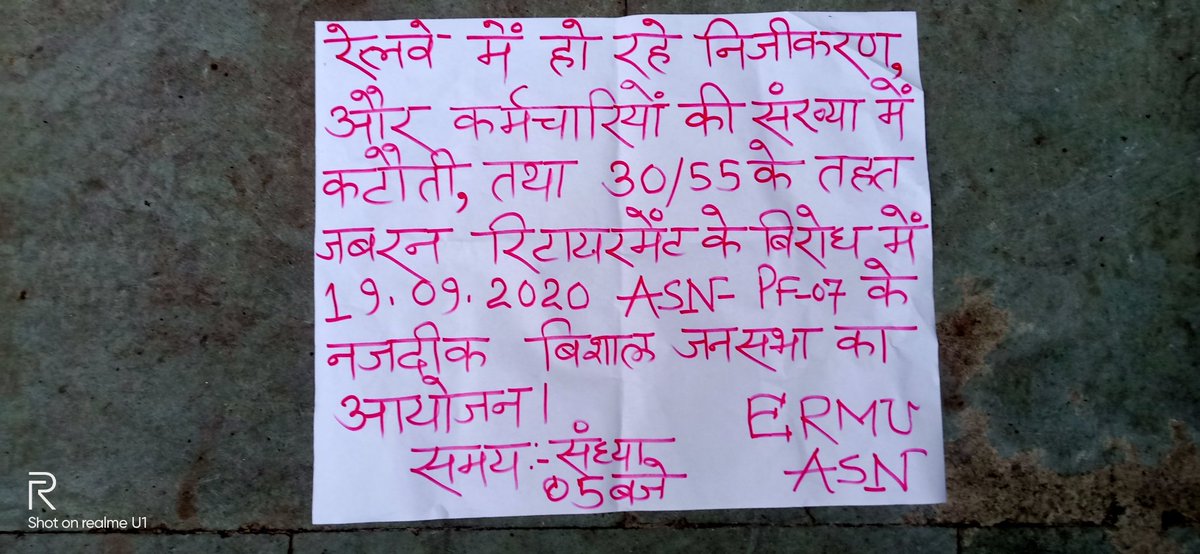 रेलवे में हो रहे निजीकरण,
और कर्मचारियों की संख्या में
कटौती, तथा 30/55 के तहत
जबरन रिटायरमेंट के बिरोध में
19.09.2020 ASN- PF-07 के
नजदीक बिशाल जनसभा का
आयोजन।
समय:- संध्या
05 बजे
ERMU
ASN
R
Shot on realme U1